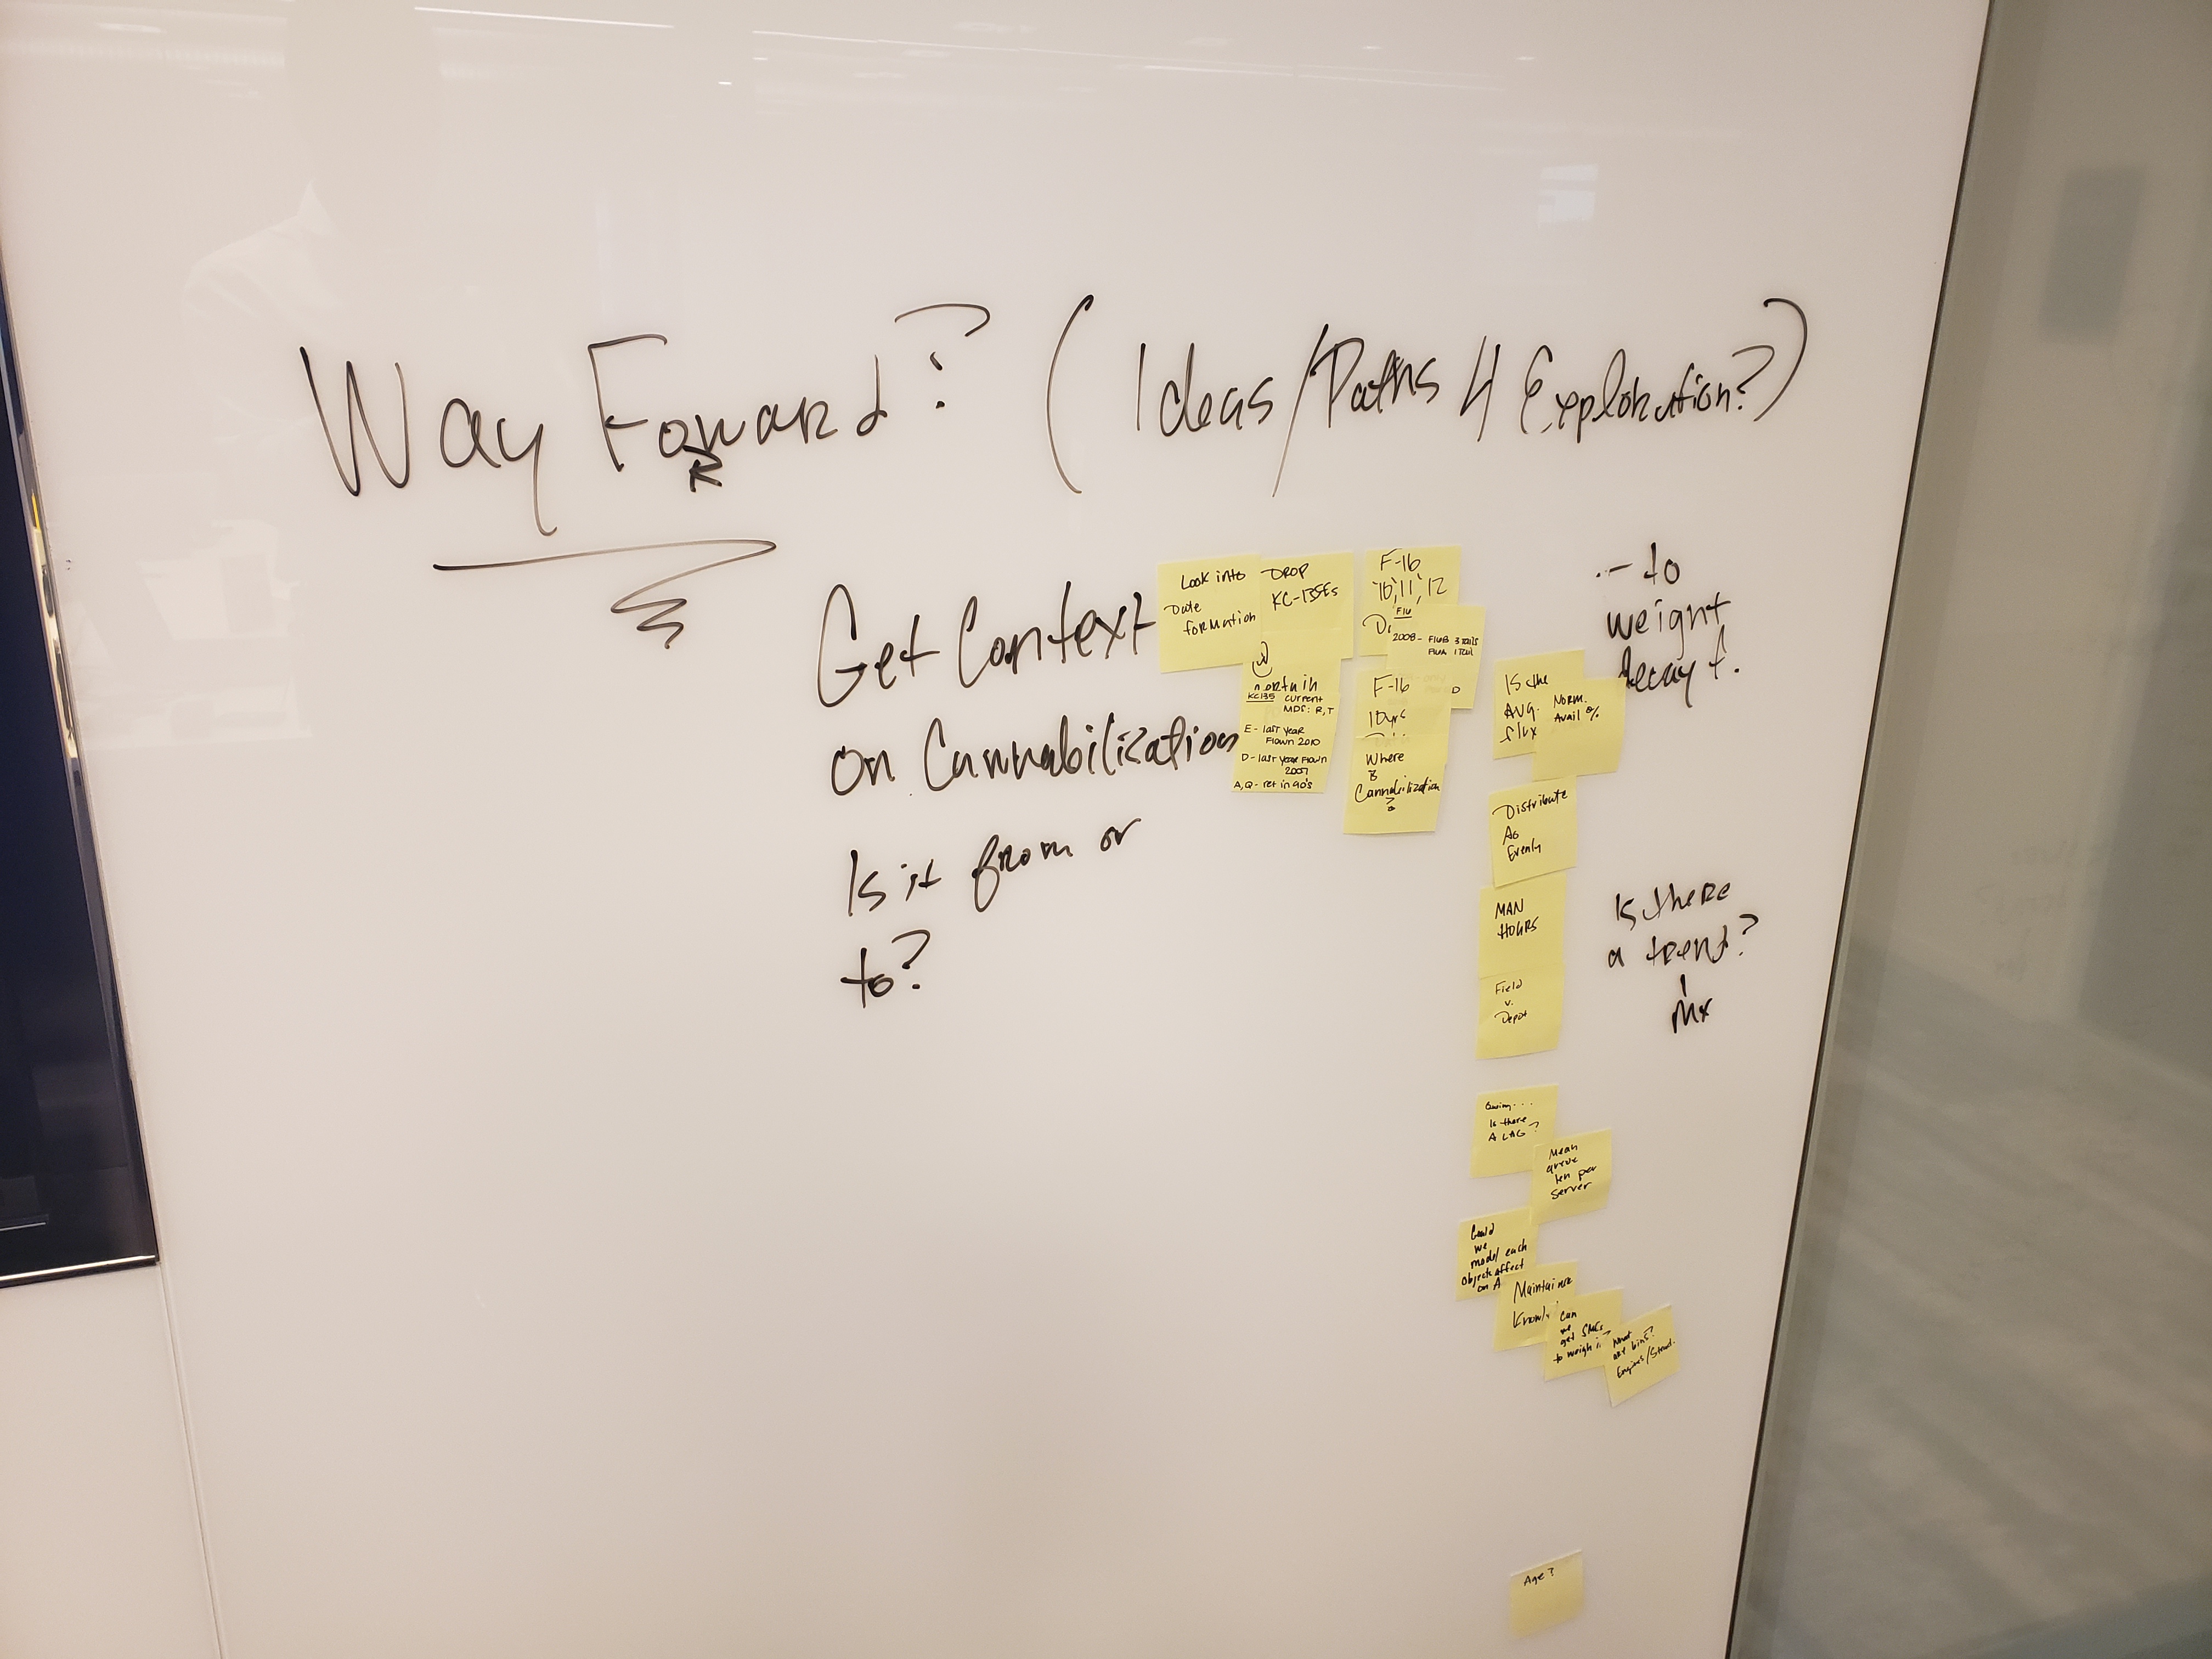 Way Forward? (Ideas/Paths 4 Exploration?)
Get Context
on Cannabilization
Is it from or
to?
Look into
Date
formation
DROP
KC-135Es
KC135 Current
MDS: R, T
E - last year
Flown 2010
D - last year Flown
2007
A, Q - ret in 90's
F-16
'10, '11, '12
F16
2008 - F16B 3 tails
F16A 1 tail
D
F-16
10yrs
Where
is
Cannibilization
?
Is the
AVG.
flux
Norm.
Avail %
Distribute
Ao
Evenly
MAN
HOURS
Field
v.
Depot
.- to
weight
decay f.
Is there
a trend?
Mx
Is there
A LAG?
Mean
queue
len per
server
Could
we
model each
object affect
on A
Maintainer
Can
we
get SMEs
to weigh
What
are bins?
Engines/
Age?